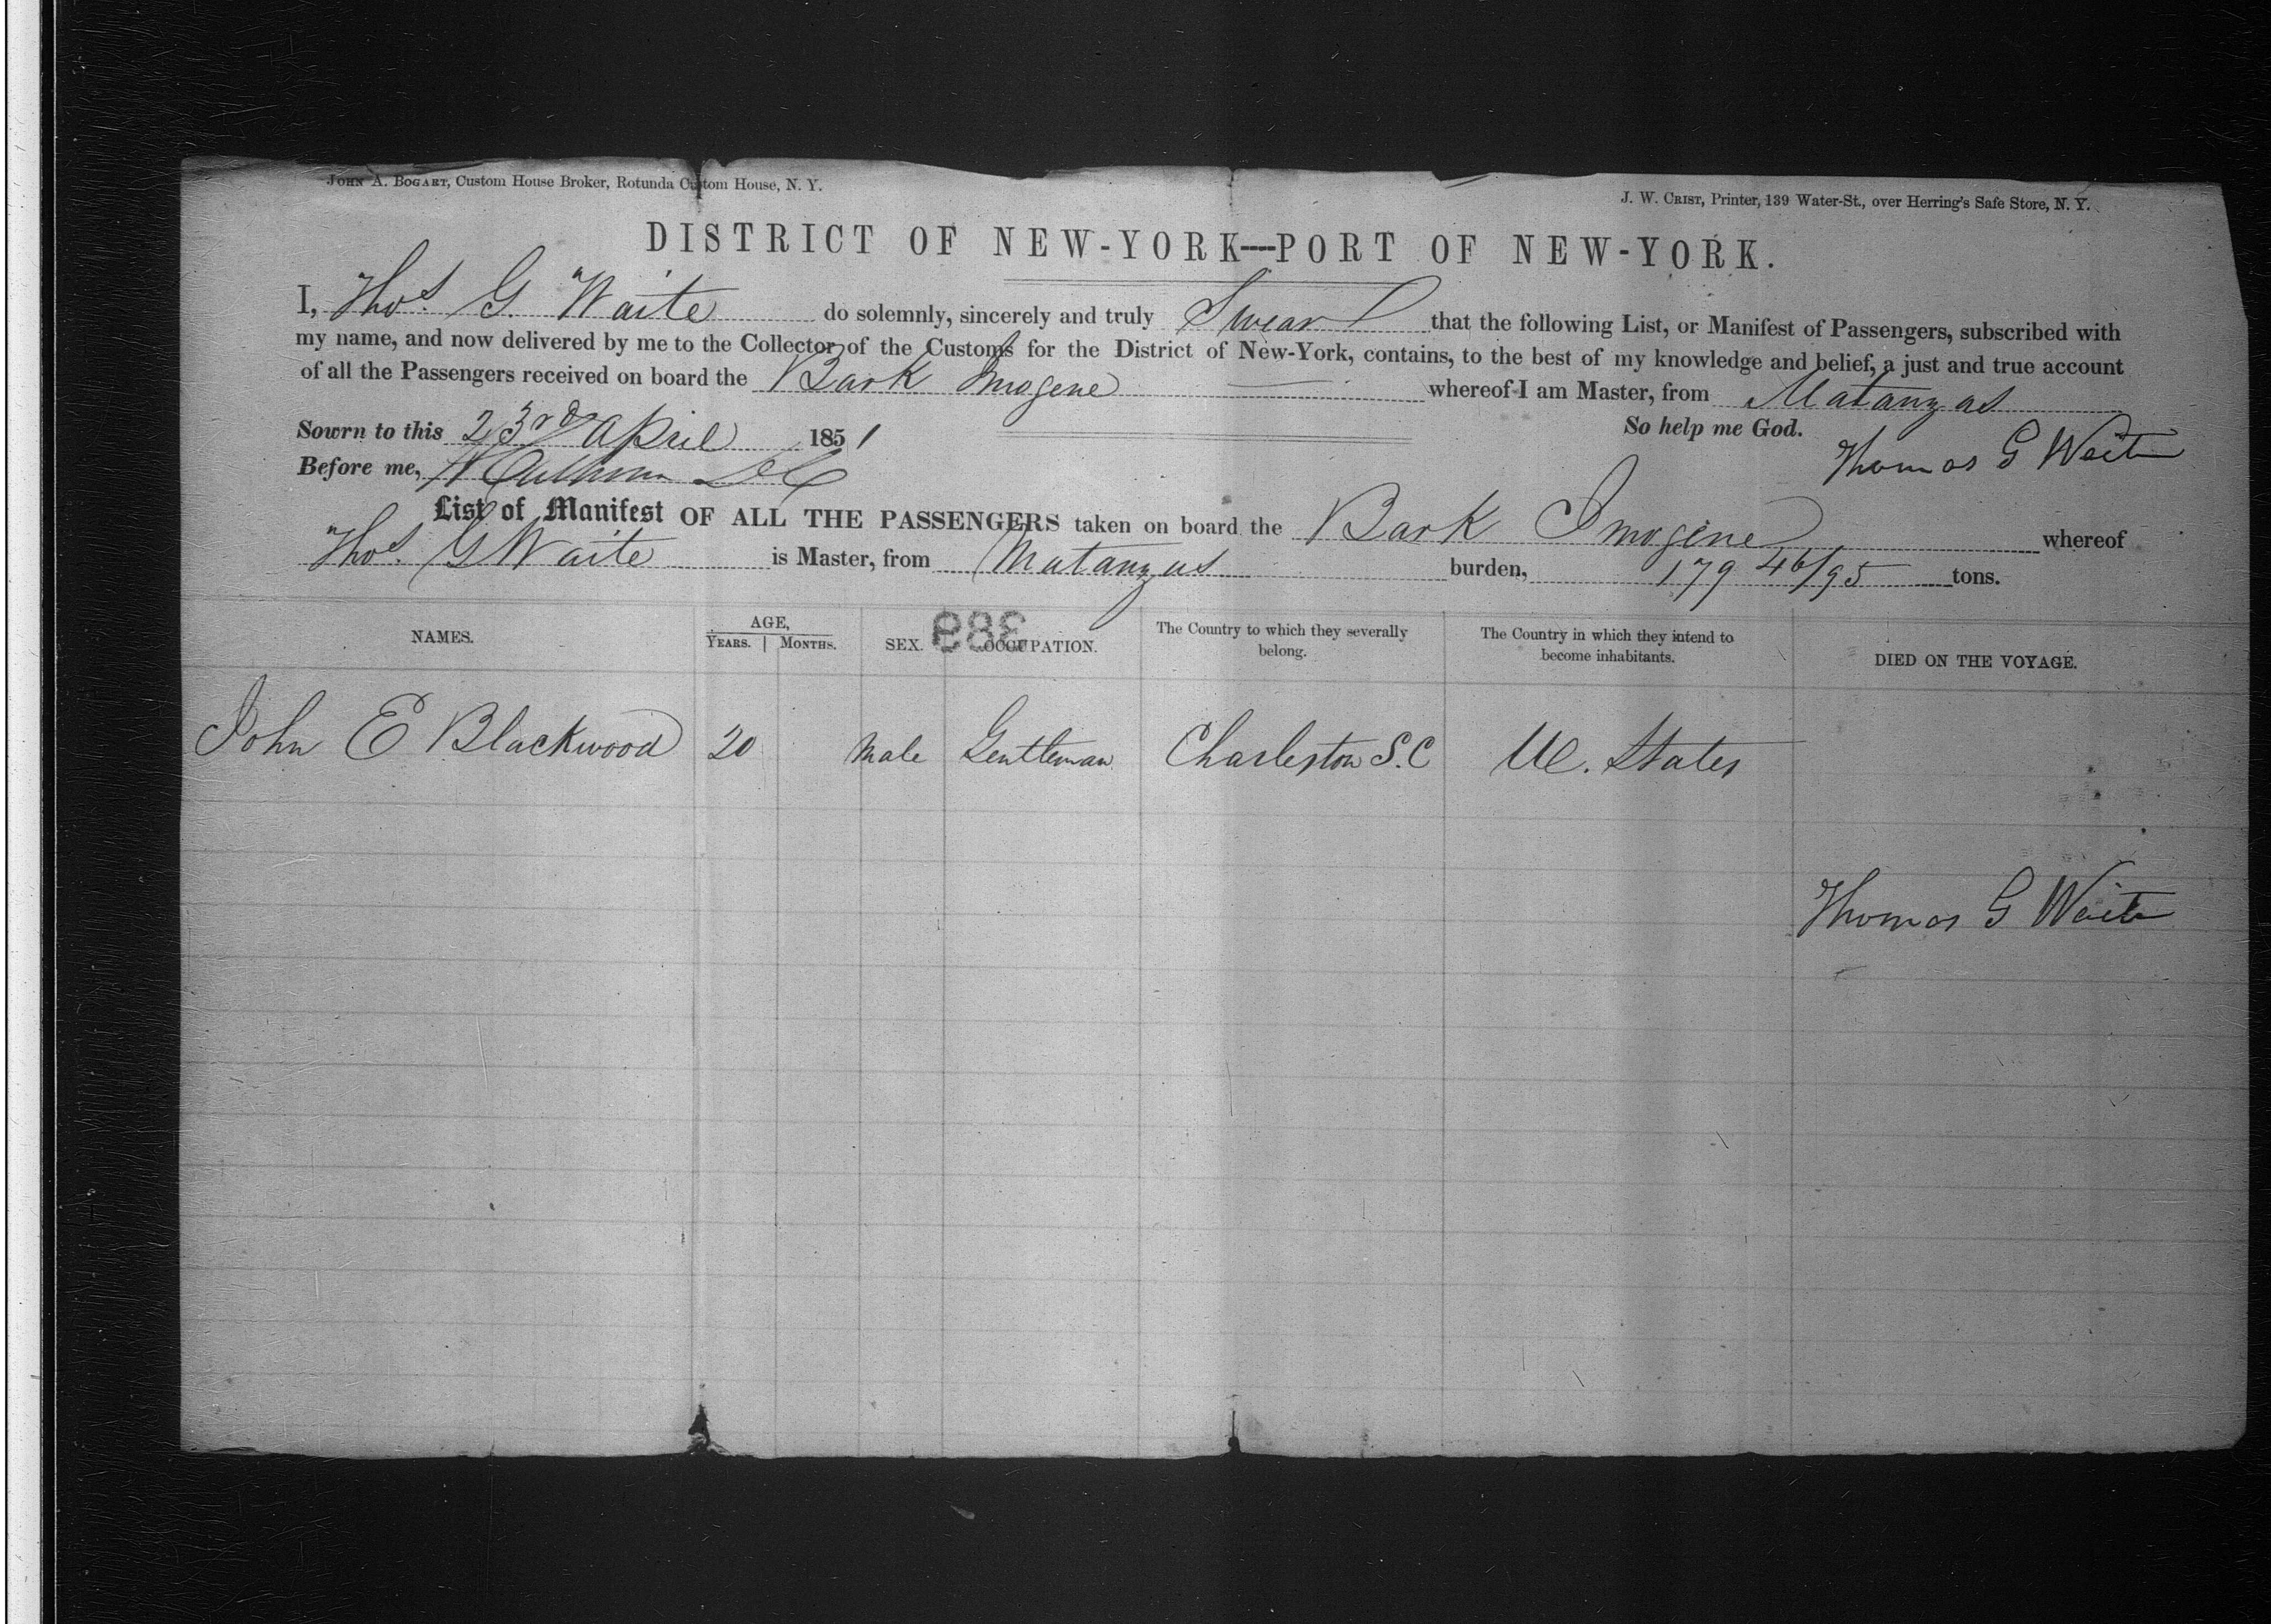 JOHN A. BOGART, Custom House Broker, Rotunda Custom House, N. Y.
J. W. CRIST, Printer, 139 Water-St., over Herring's Safe Store, N. Y.
DISTRICT OF NEW-YORK—PORT OF NEW-YORK.
I, Thos. G. Waite do solemnly, sincerely and truly Swear that the following List, or Manifest of Passengers, subscribed with
my name, and now delivered by me to the Collector of the Customs for the District of New-York, contains, to the best of my knowledge and belief, a just and true account
of all the Passengers received on board the Bark Imogene whereof I am Master, from Matanzas
Sowrn to this 23rd April 1851 So help me God.
Thomas G Waite
Before me,
List of Manifest OF ALL THE PASSENGERS taken on board the Bark Imogene whereof
Thos. G Waite is Master, from Matanzas burden, 179 46/95 tons.
389
NAMES. AGE, YEARS. | MONTHS. SEX. OCCUPATION. The Country to which they severally belong. The Country in which they intend to become inhabitants. DIED ON THE VOYAGE.
John E Blackwood 20 Male Gentleman Charleston S.C U. States
Thomas G Waite